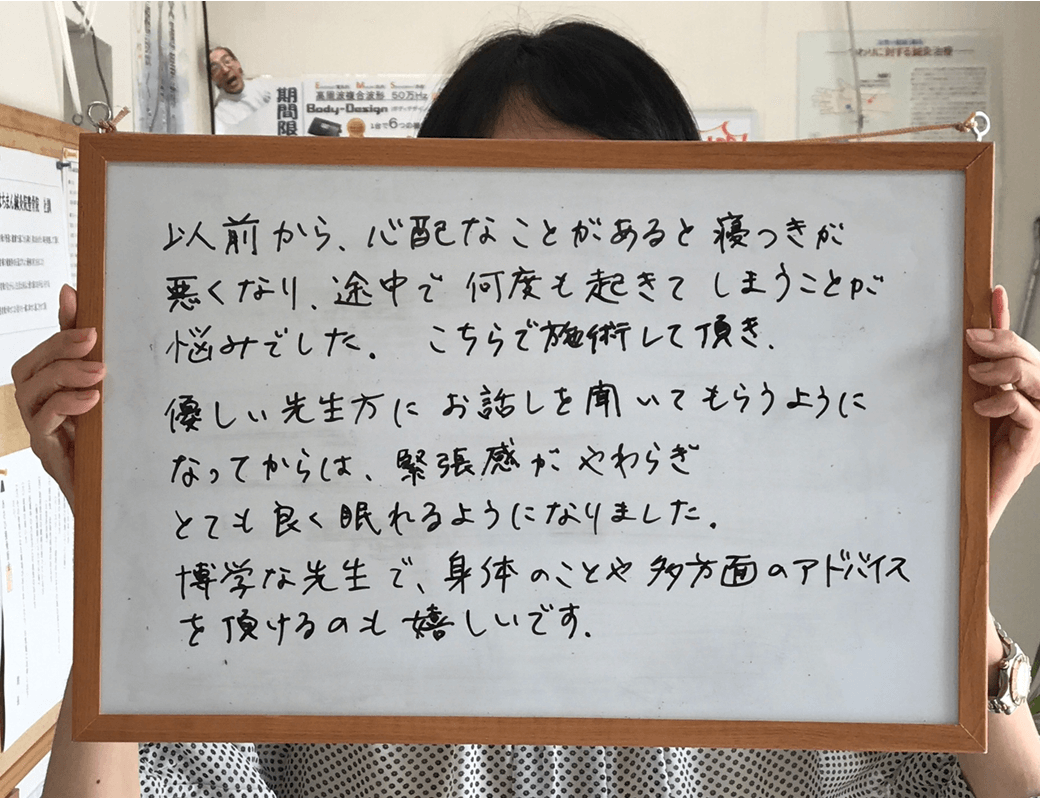 期間限
高周波複合波形 50万Hz
Body-Design
1台で6つの機
わりに対する鍼灸治療
以前から、心配なことがあると寝つきが
悪くなり、途中で何度も起きてしまうことが
悩みでした。 こちらで施術して頂き、
優しい先生方にお話しを聞いてもらうように
なってからは、緊張感がやわらぎ
とても良く眠れるようになりました。
博学な先生で、身体のことや多方面のアドバイス
を頂けるのも嬉しいです。